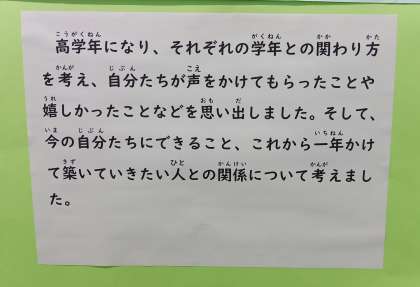 高学年になり、それぞれの学年との関わり方
を考え、自分たちが声をかけてもらったことや
嬉しかったことなどを思い出しました。そして、
今の自分たちにできること、これから一年かけ
て築いていきたい人との関係について考えまし
た。